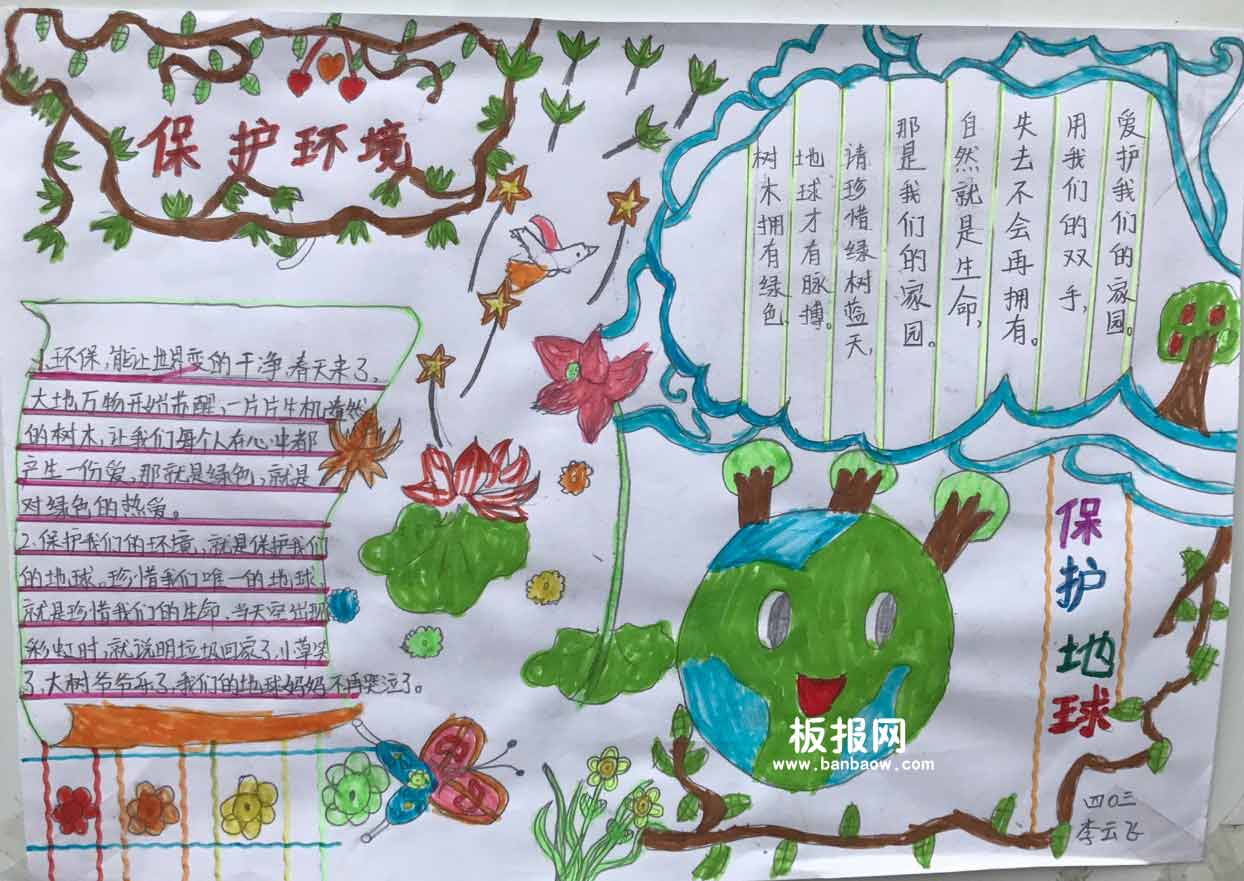 保护环境
1.环保,能让世界变的干净,春天来了,
大地万物开始苏醒,一片片生机盎然
的树木,让我们每个人在心中都
产生一份爱,那就是绿色,就是
对绿色的热爱。
2.保护我们的环境,就是保护我们
的地球,珍惜我们唯一的地球,
就是珍惜我们的生命,当天空出现
彩虹时,就说明垃圾回家了,小草笑
了,大树爷爷乐了,我们的地球妈妈不再哭泣了。
爱护我们的家园。
用我们的双手,
失去不会再拥有。
自然就是生命,
那是我们的家园。
请珍惜绿树蓝天,
地球才有脉搏。
树木拥有绿色,
保护地球
四〇三
李云飞
板报网
www.banbaow.com